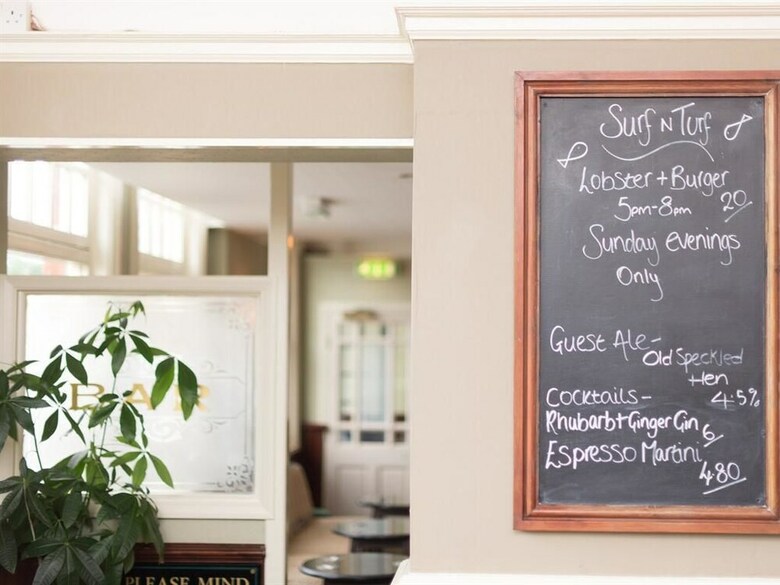 BAR
PLEASE MIND
Surf N Turf
Lobster + Burger
5pm-8pm 20
Sunday evenings
Only
Guest Ale-
Old Speckled
Hen
4.5%
Cocktails-
Rhubarb+Ginger Gin
6
Espresso Martini
4.80